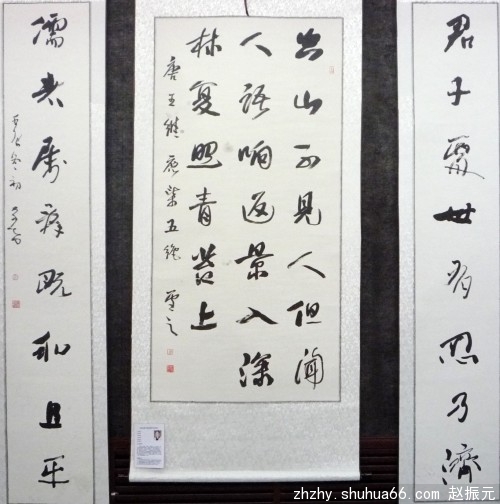 君子處世有忍乃濟
空山不見人但闻
人语响返景入深
林复照青苔上
唐王維鹿柴五绝
儒者屬辭既和且平
zhzhy.shuhua66.com 赵振元